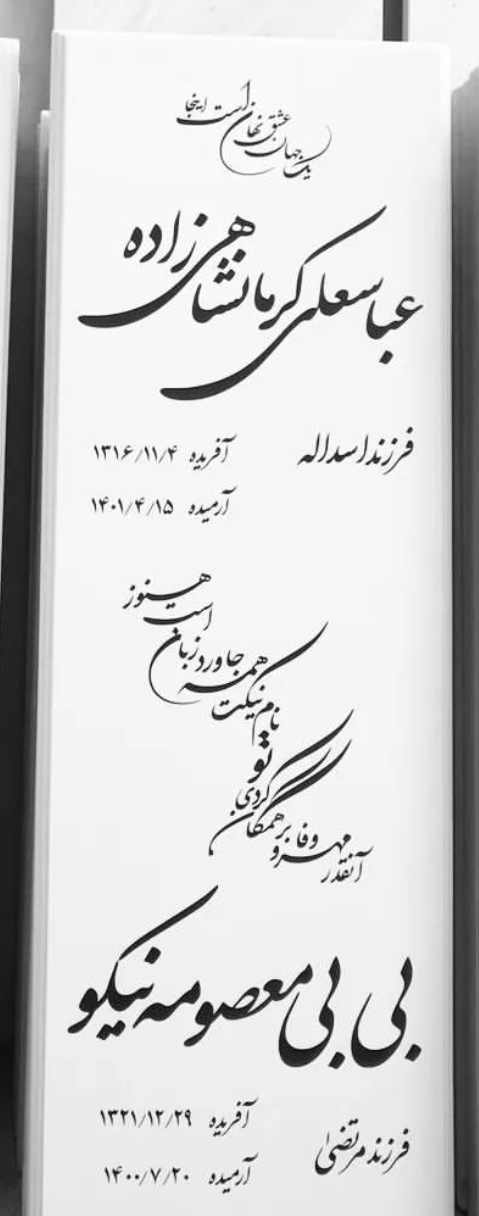 یک جهان عشق نهان است اینجا
عباسعلی کرمانشاهی زاده
فرزند اسداله
آفریده ۱۳۱۶/۱۱/۴
آرمیده ۱۴۰۱/۴/۱۵
آنقدر مهر و وفا بر همگان کردی تو
نام نیکت همه جا ورد زبان است هنوز
بی بی معصومه نیکو
فرزند مرتضی
آفریده ۱۳۲۱/۱۲/۲۹
آرمیده ۱۴۰۰/۷/۲۰